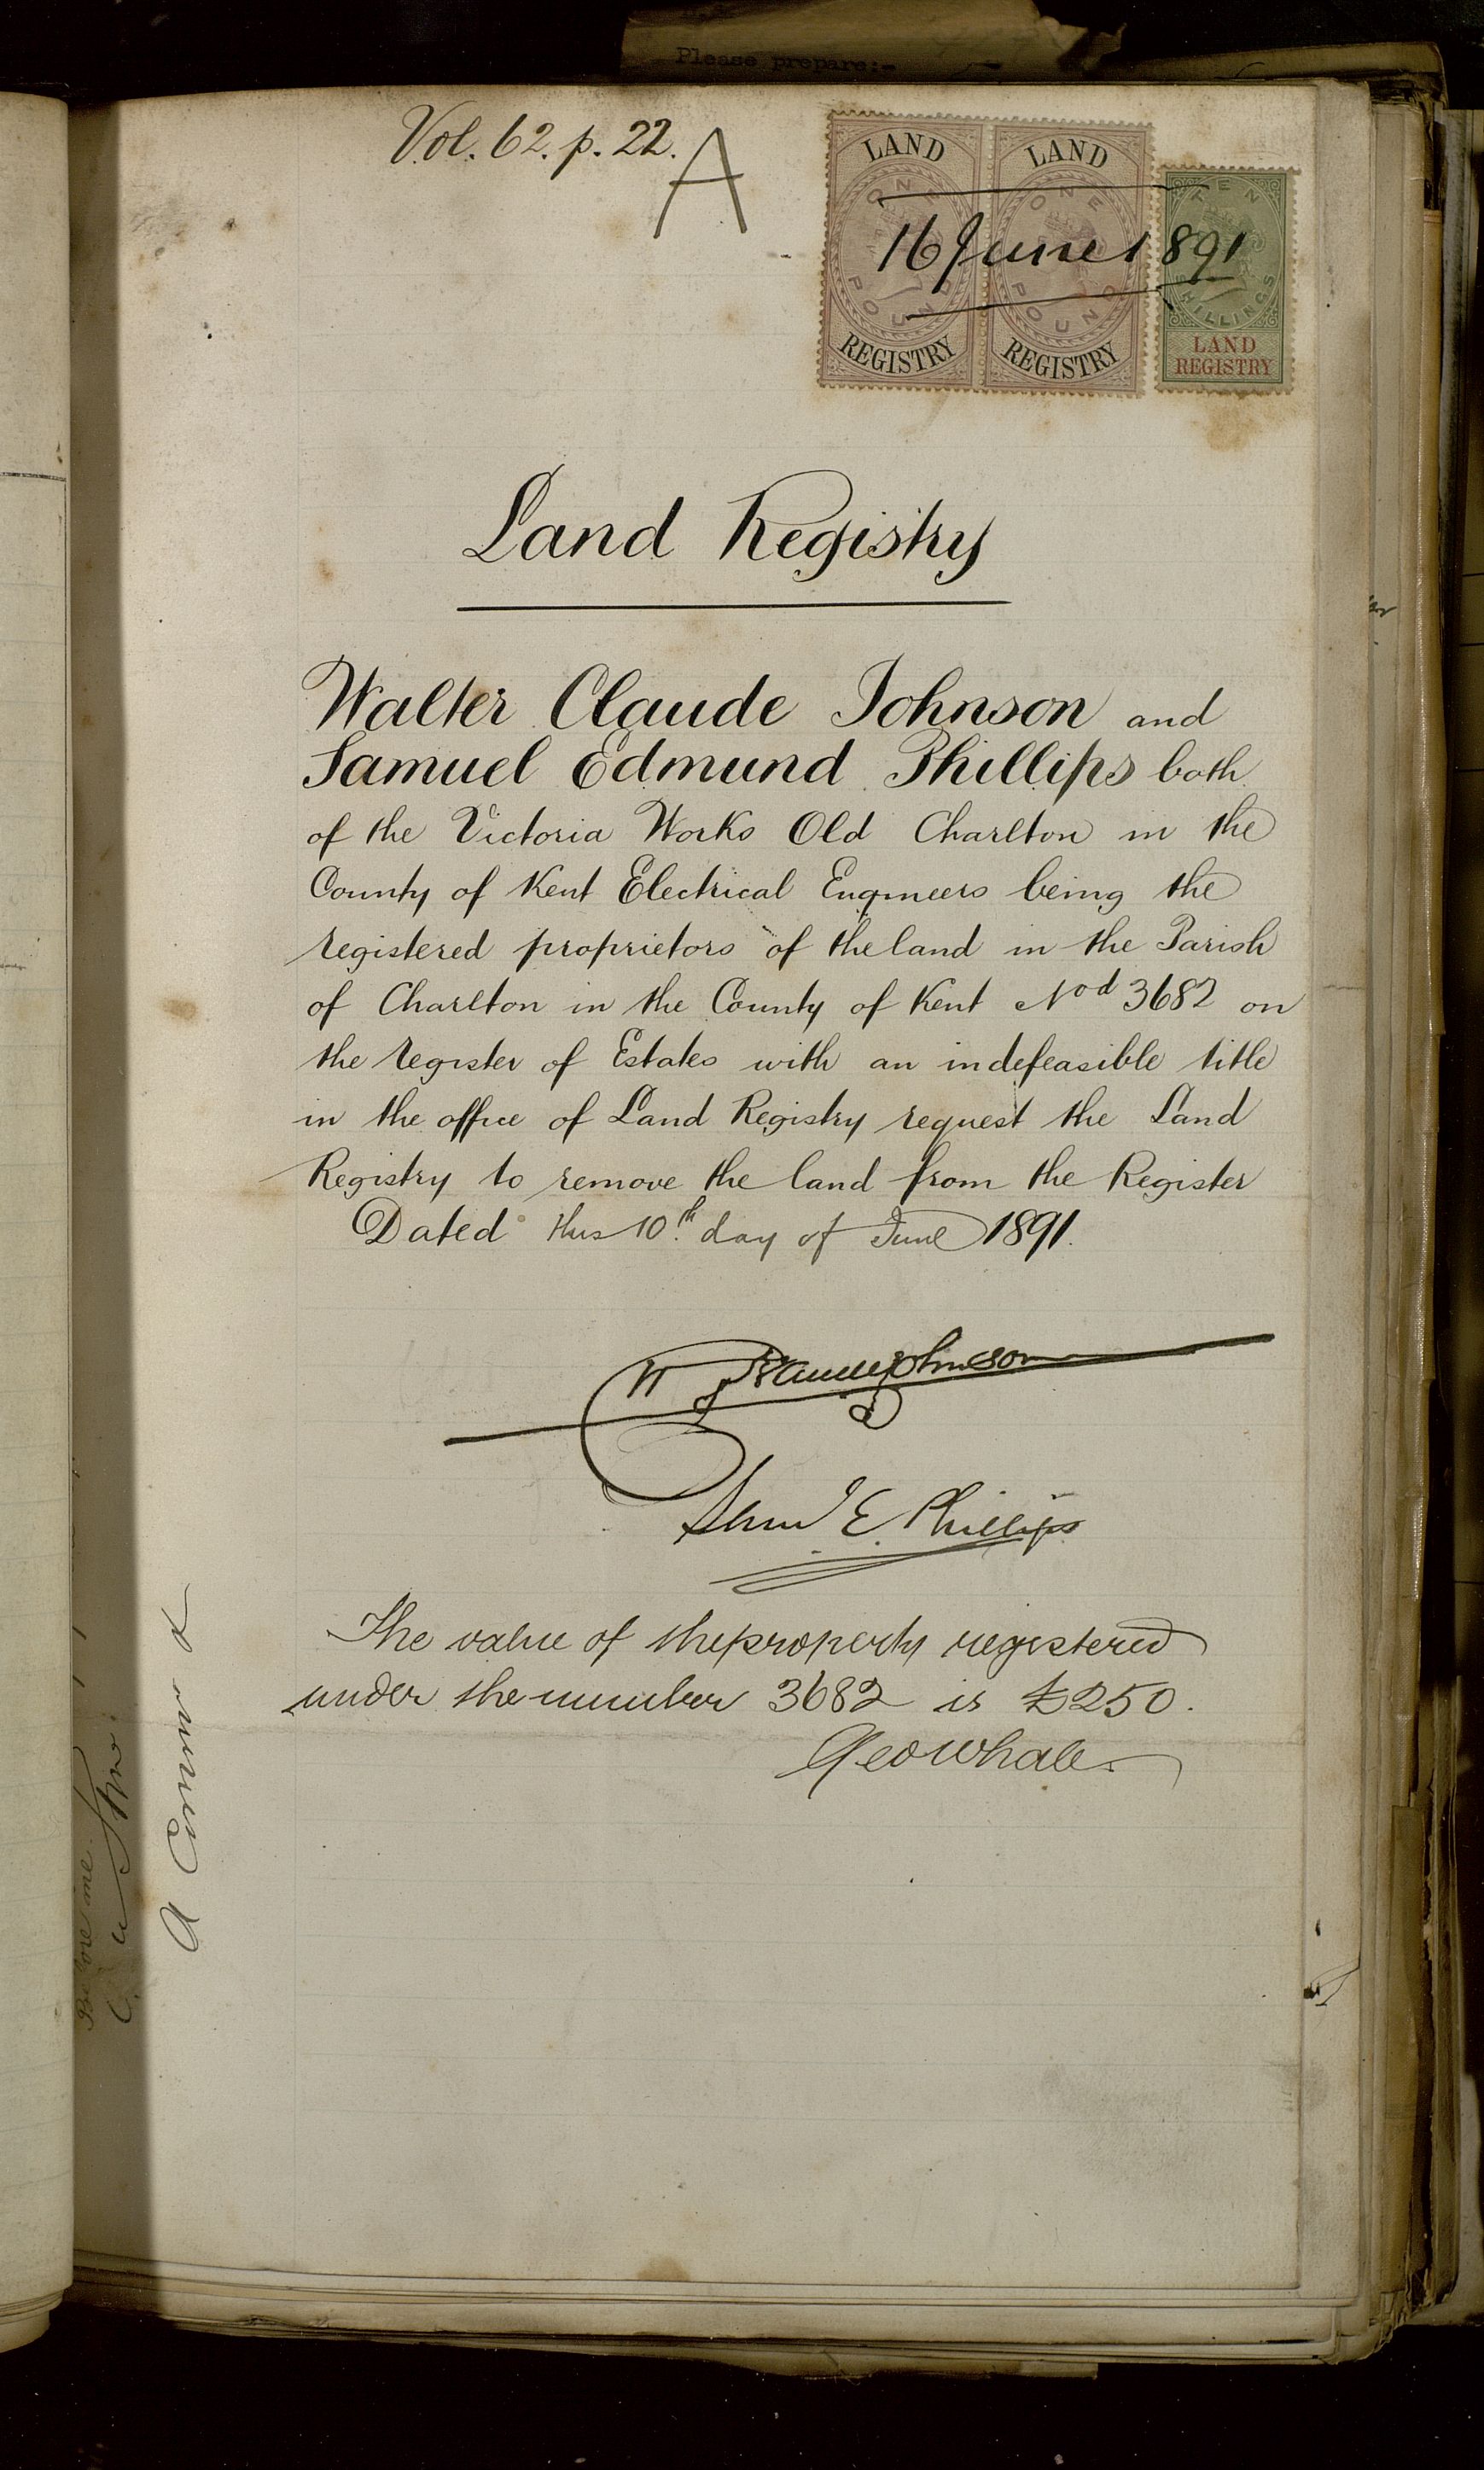 Please prepare:-
Vol. 62. p. 22.
A
LAND LAND
ONE POUND ONE POUND
TEN SHILLINGS
16 June 1891
REGISTRY REGISTRY
LAND
REGISTRY
Land Registry
Walter Claude Johnson and
Samuel Edmund Phillips both
of the Victoria Works Old Charlton in the
County of Kent Electrical Engineers being the
registered proprietors of the land in the Parish
of Charlton in the County of Kent Nod 3682 on
the register of Estates with an indefeasible title
in the office of Land Registry request the Land
Registry to remove the land from the Register
Dated this 10th. day of June 1891.
W Claude Johnson
Saml E. Phillips
The value of the property registered
under the number 3682 is £250.
Geo Whale
Before me
A Commr